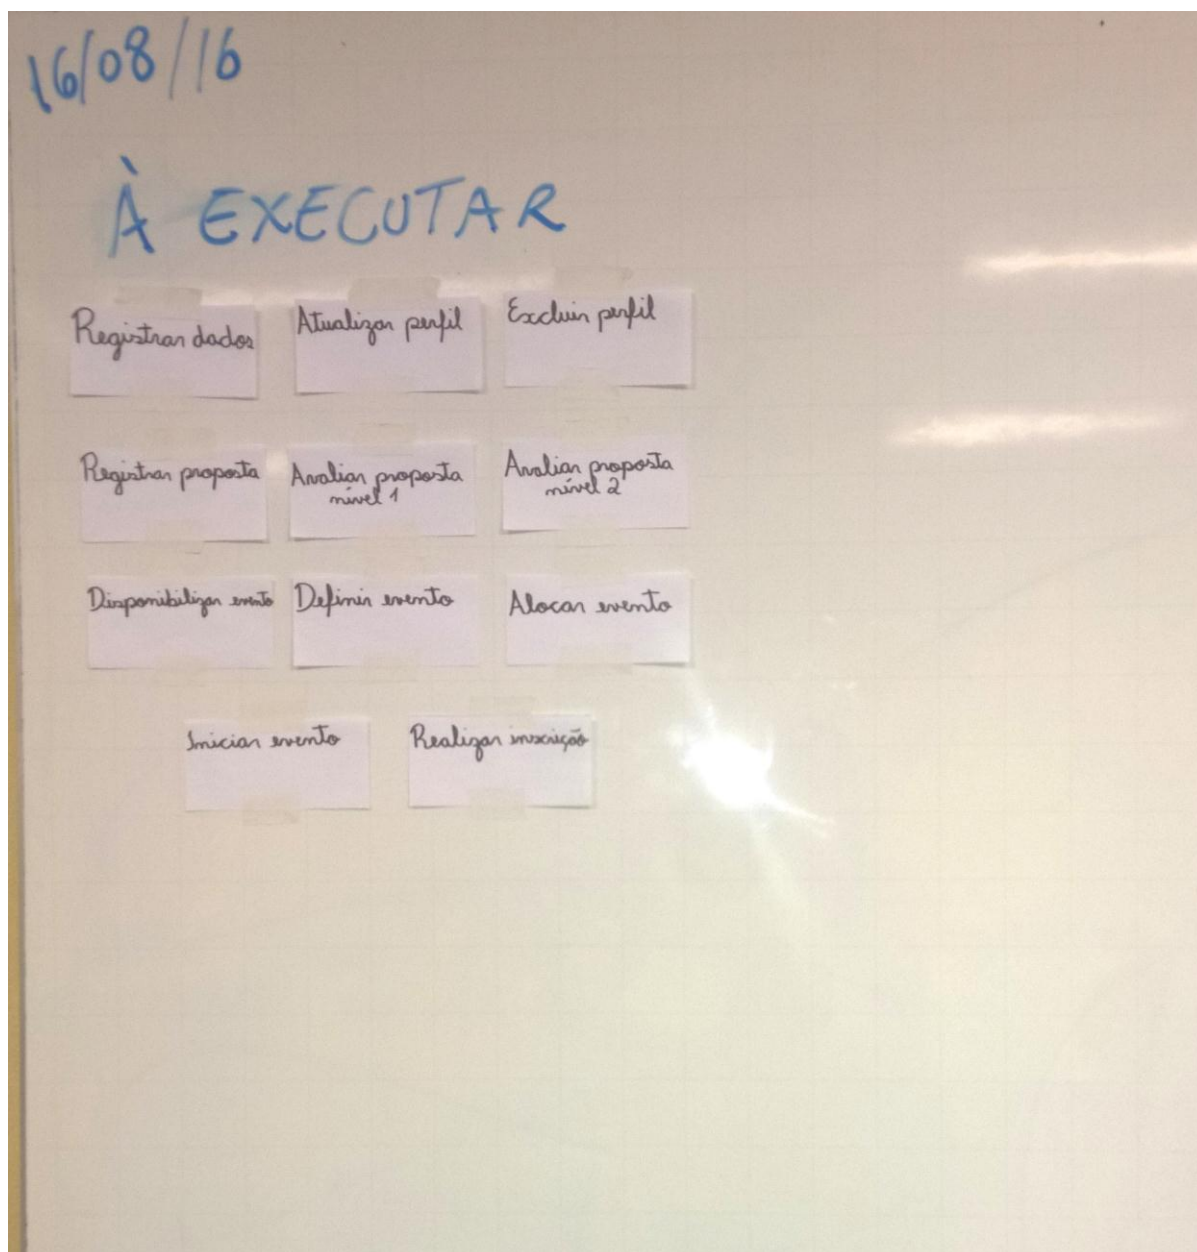 16/08/16
À EXECUTAR
Registrar dados
Atualizar perfil
Excluir perfil
Registrar proposta
Avaliar proposta
nível 1
Avaliar proposta
nível 2
Disponibilizar evento
Definir evento
Alocar evento
Iniciar evento
Realizar inscrição